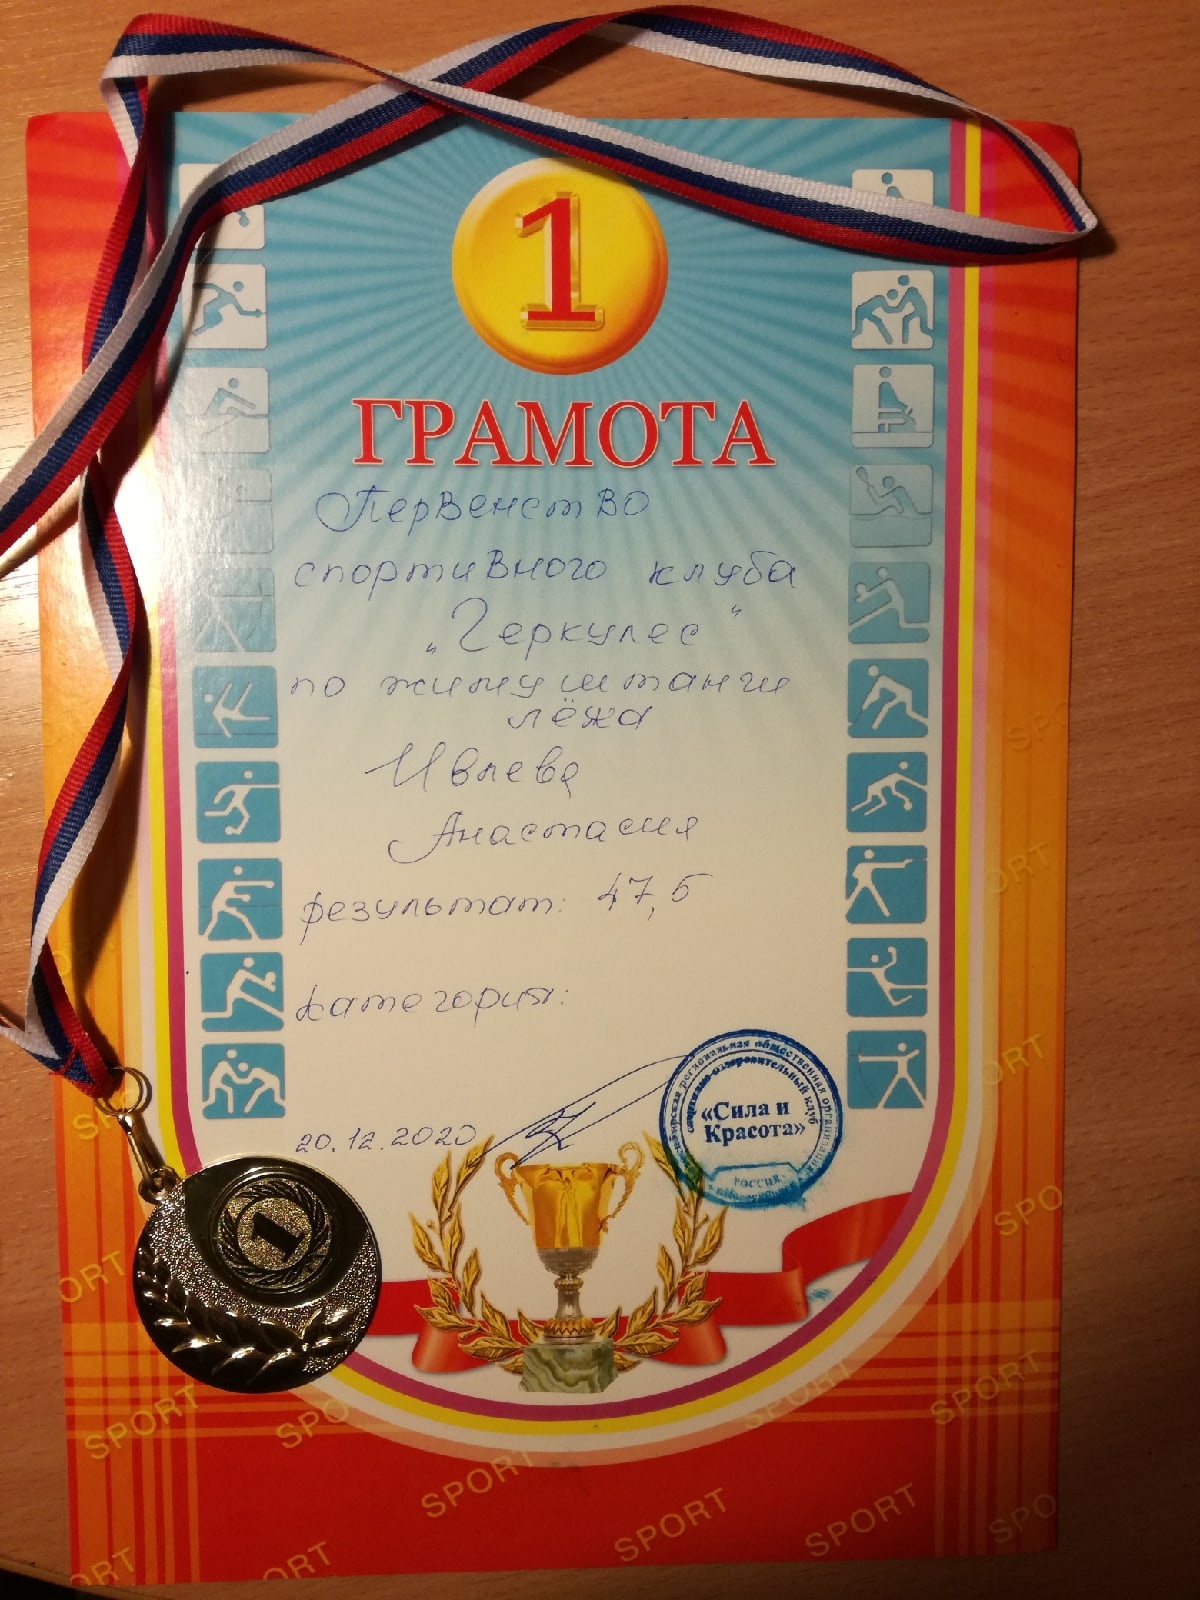 1
ГРАМОТА
Первенство
спортивного клуба
„Геркулес"
по жиму штанги
лёжа
Ивлева
Анастасия
результат: 47,5
категория:
20.12.2020
региональная общественная организация
спортивно-оздоровительный клуб
«Сила и
Красота»
РОССИЯ
1
SPORT
SPORT
SPORT
SPORT
SPORT
SPORT